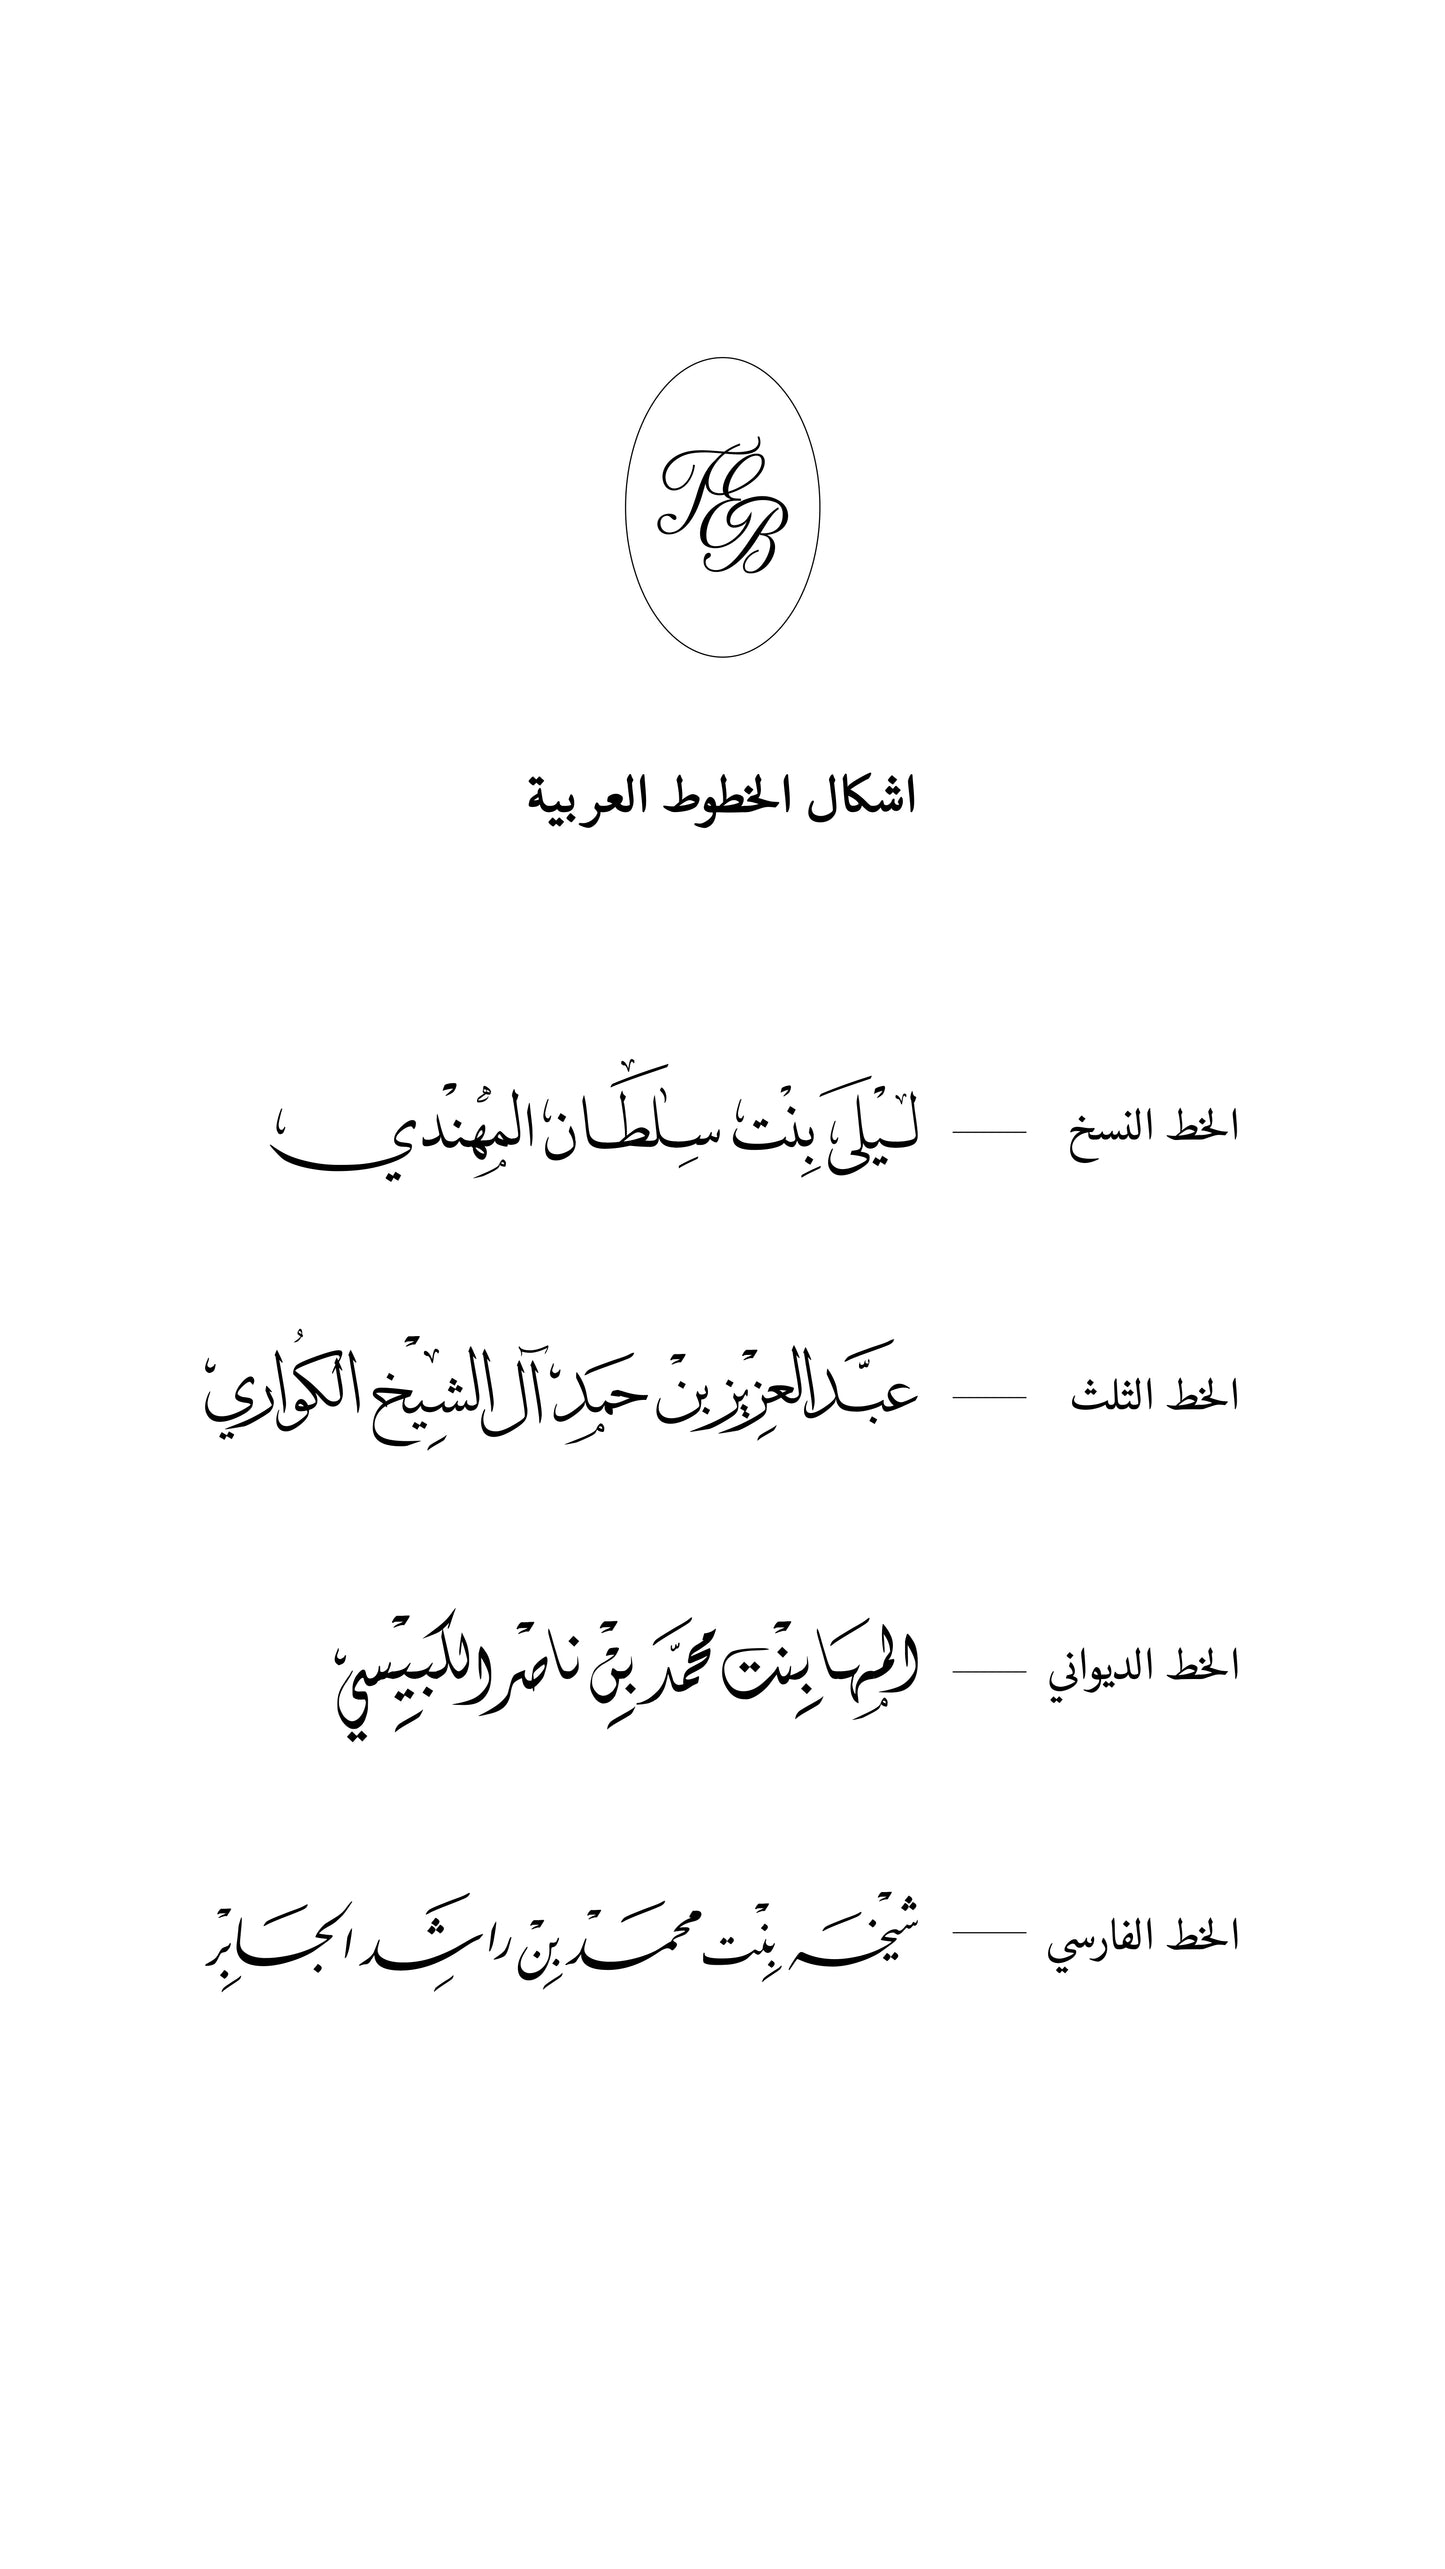 TEB
اشكال الخطوط العربية
الخط النسخ — ليلى بنت سلطان المهندي
الخط الثلث — عبدالعزيز بن حمد آل الشيخ الكواري
الخط الديواني — المها بنت محمد بن ناصر الكبيسي
الخط الفارسي — شيخه بنت محمد بن راشد الجابر